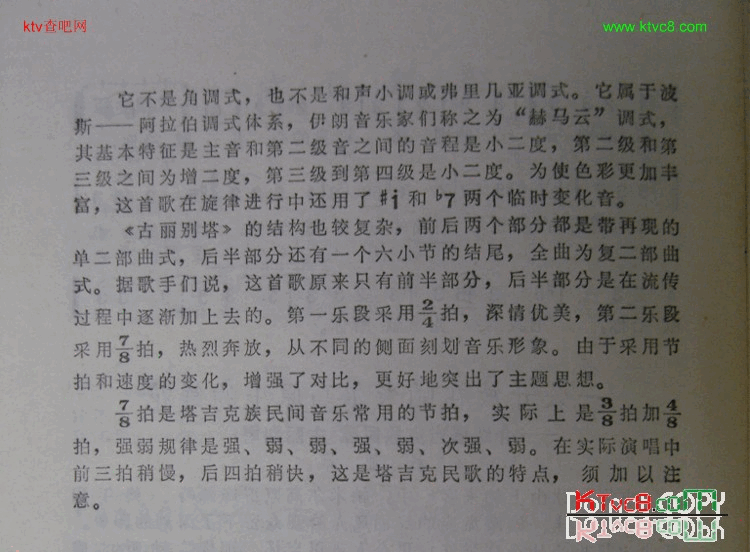 ktv查吧网
www.ktvc8.com
它不是角调式，也不是和声小调或弗里几亚调式。它属于波
斯——阿拉伯调式体系，伊朗音乐家们称之为“赫马云”调式，
其基本特征是主音和第二级音之间的音程是小二度，第二级和第
三级之间为增二度，第三级到第四级是小二度。为使色彩更加丰
富，这首歌在旋律进行中还用了#i和♭7两个临时变化音。
《古丽别塔》的结构也较复杂，前后两个部分都是带再现的
单二部曲式，后半部分还有一个六小节的结尾，全曲为复二部曲
式。据歌手们说，这首歌原来只有前半部分，后半部分是在流传
过程中逐渐加上去的。第一乐段采用2/4拍，深情优美，第二乐段
采用7/8拍，热烈奔放，从不同的侧面刻划音乐形象。由于采用节
拍和速度的变化，增强了对比，更好地突出了主题思想。
7/8拍是塔吉克族民间音乐常用的节拍，实际上是3/8拍加4/8
拍，强弱规律是强、弱、弱、强、弱、次强、弱。在实际演唱中
前三拍稍慢，后四拍稍快，这是塔吉克民歌的特点，须加以注
意。
KTvc8.com